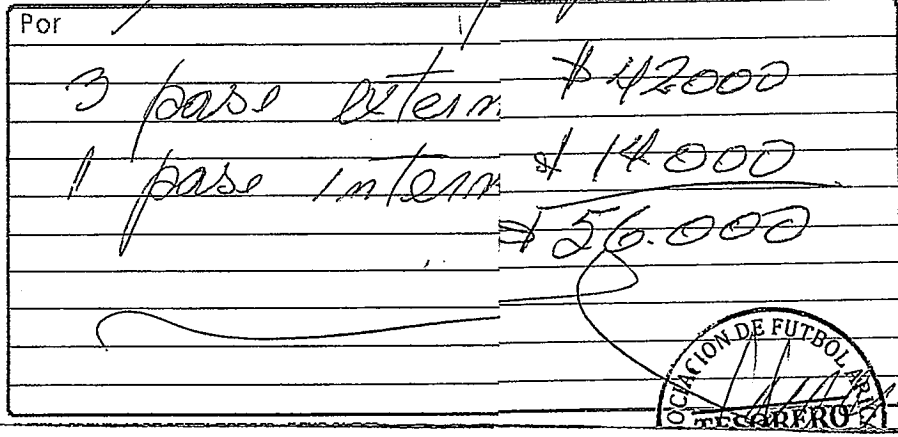 Por
3 pase extern $ 42000
1 pase intern $ 14000
$ 56.000
OCIACION DE FUTBOL ARIC
TESORERO